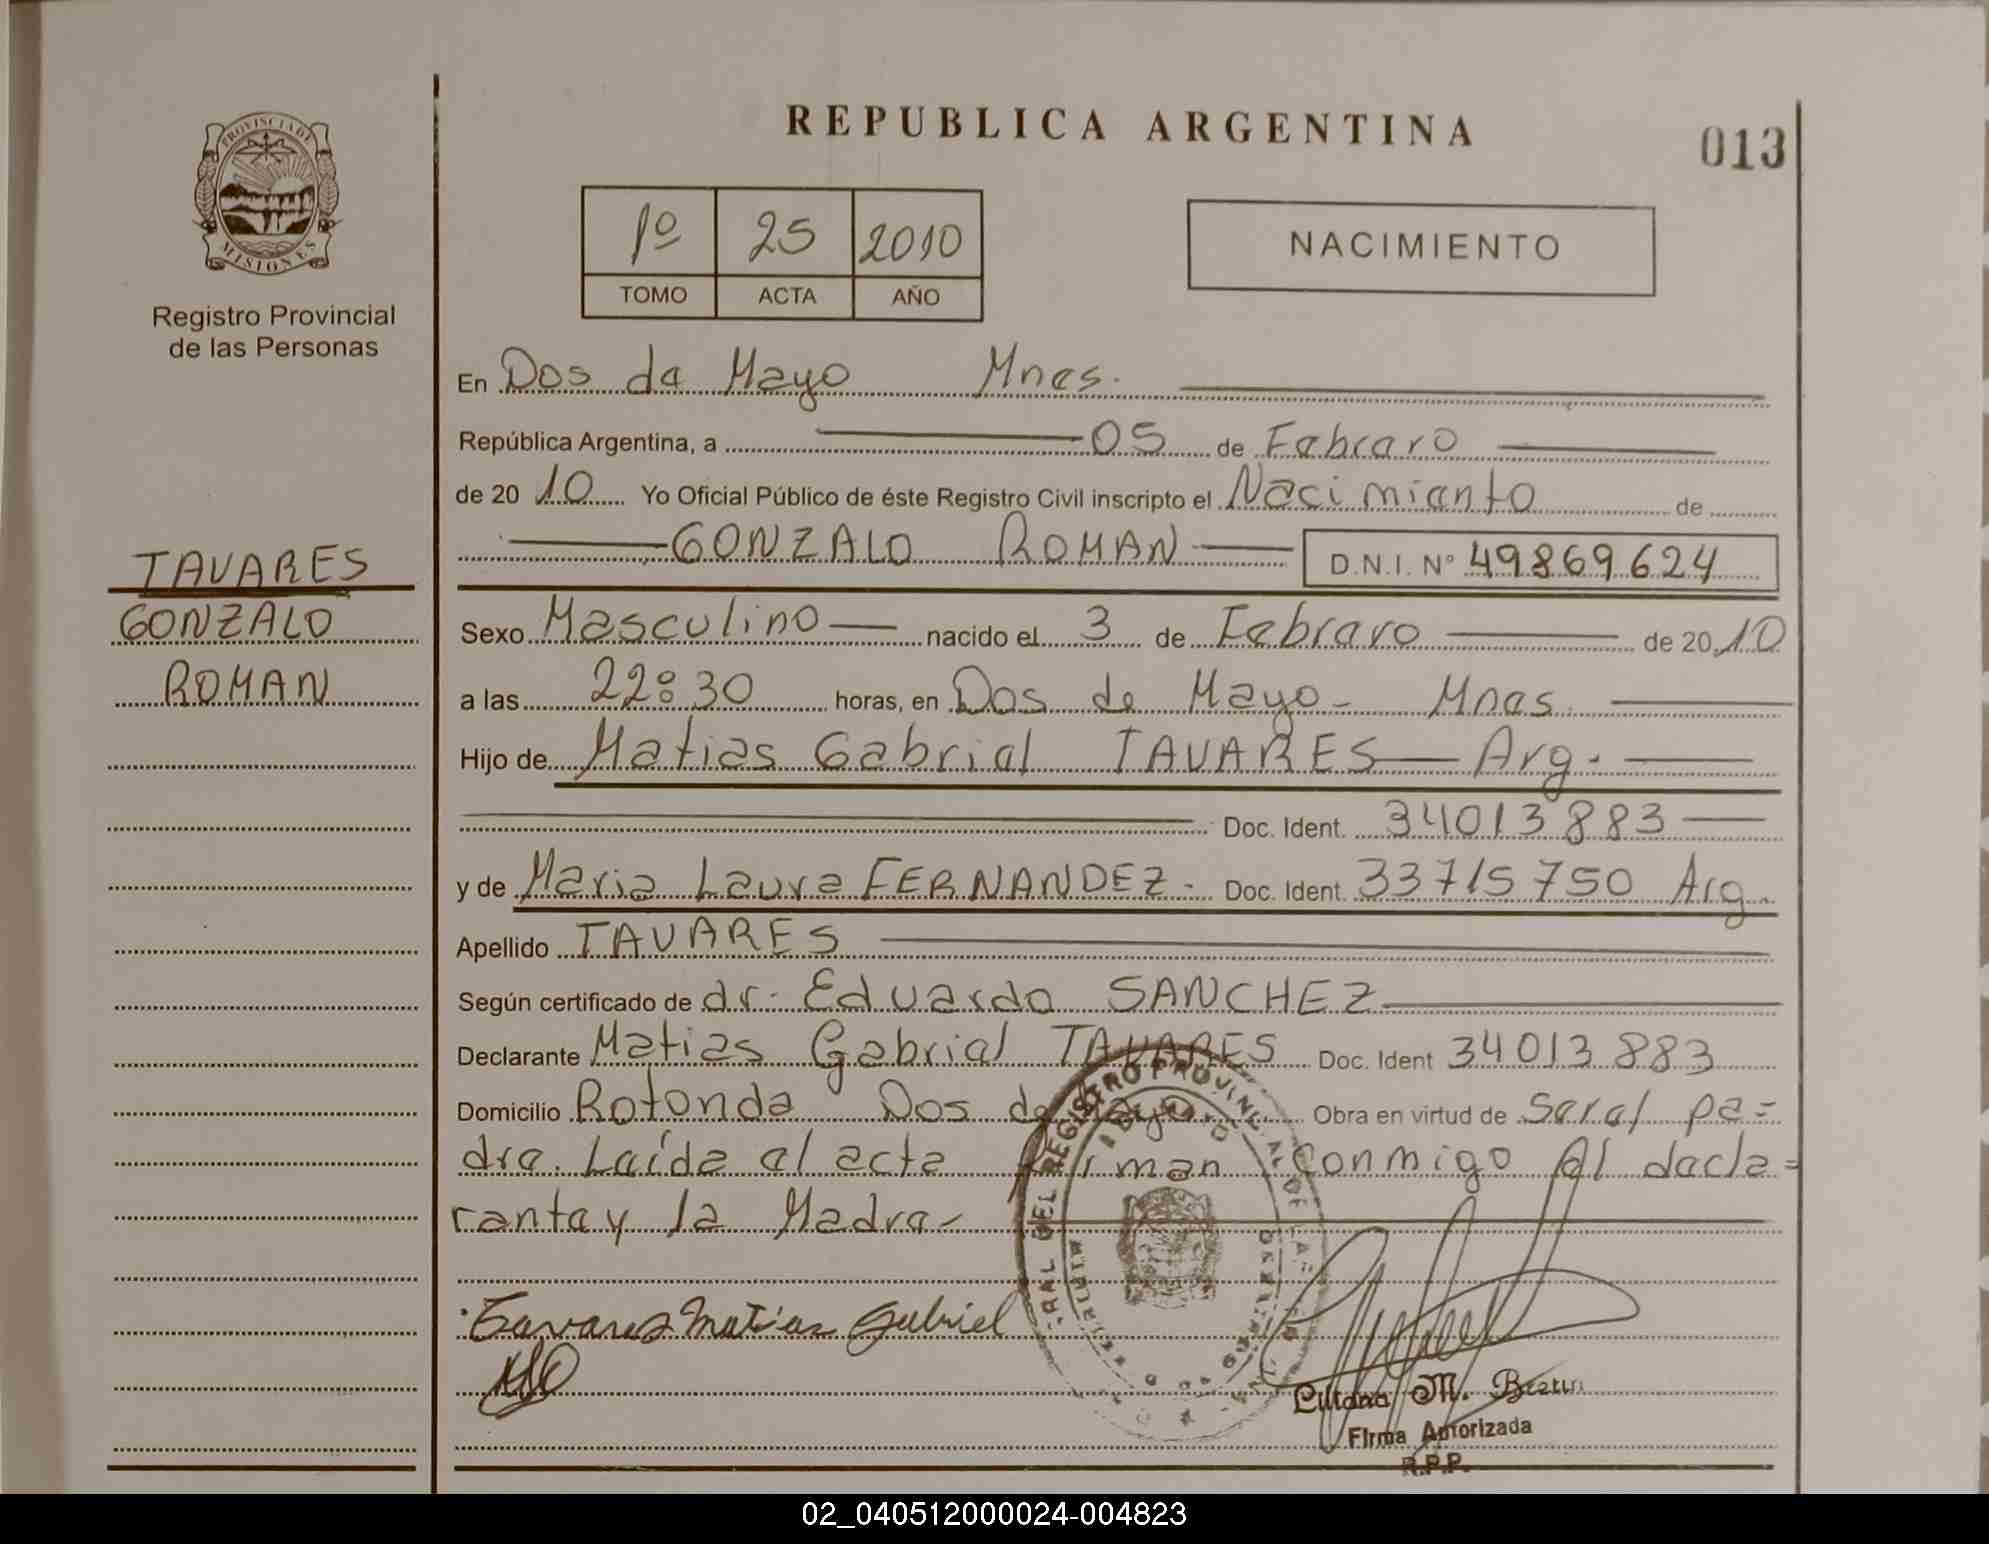 REPUBLICA ARGENTINA
013
PROVINCIA DE
MISIONES
Registro Provincial
de las Personas
1º 25 2010
TOMO ACTA AÑO
NACIMIENTO
En Dos de Mayo Mnes.
República Argentina, a 05 de Febrero
de 2010 Yo Oficial Público de éste Registro Civil inscripto el Nacimiento de
GONZALO ROMAN D.N.I. Nº 49869624
TAVARES
GONZALO
ROMAN
Sexo Masculino nacido el 3 de Febrero de 2010
a las 22:30 horas, en Dos de Mayo - Mnes.
Hijo de Matias Gabriel TAVARES Arg.
Doc. Ident. 34013883
y de Maria Laura FERNANDEZ - Doc. Ident. 33715750 Arg.
Apellido TAVARES
Según certificado de dr. Eduardo SANCHEZ
Declarante Matias Gabriel TAVARES Doc. Ident 34013883
Domicilio Rotonda Dos de Mayo Obra en virtud de ser el pa=
dre. Leída el acta firman conmigo El decla=
rante y la Madre-
Tavares Matias Gabriel
REGISTRO PROVINCIAL DE LAS
M. 
Firma Autorizada
R.P.P.
02_040512000024-004823